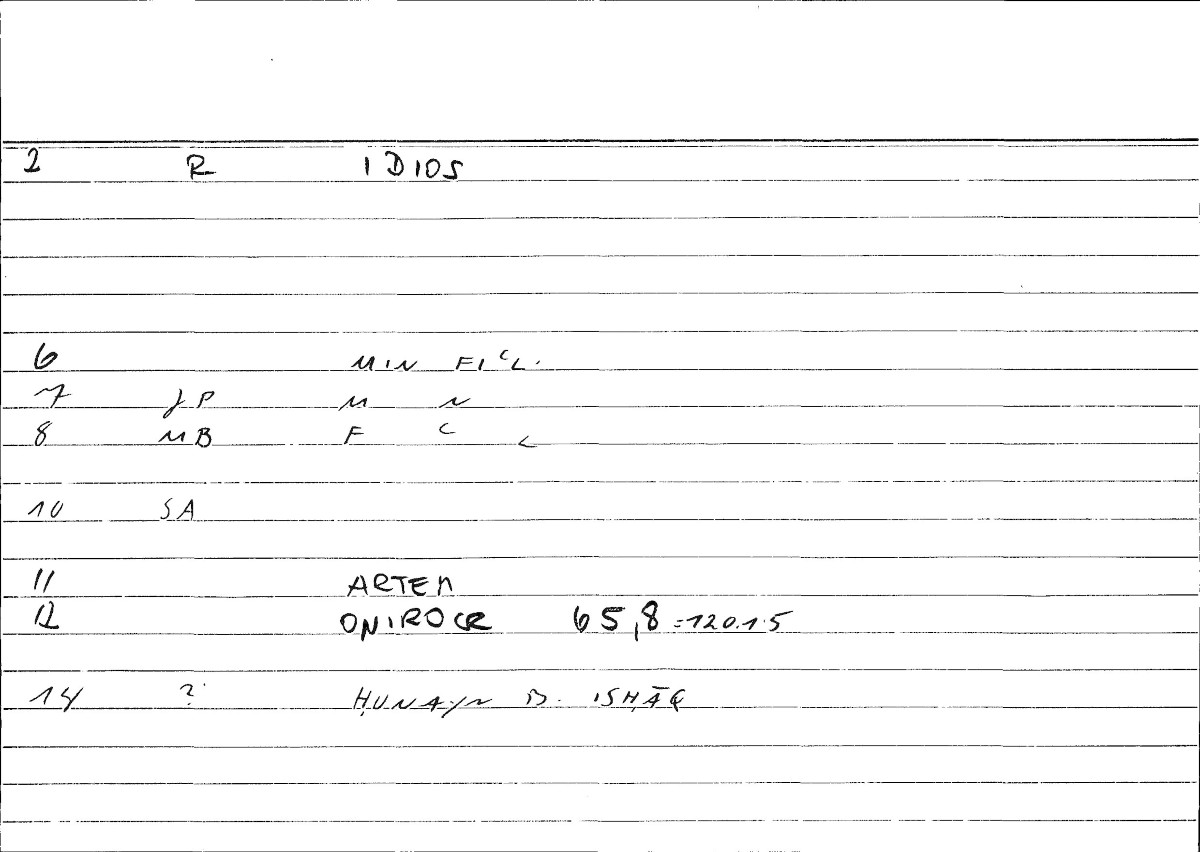 2 R IDIOS
6 MIN FI C L.
7 JP M N
8 MB F C L
10 SA
11 ARTEM
12 ONIROCR 65,8 = 120.1.5
14 ? ḤUNAYN B. ISḤĀQ